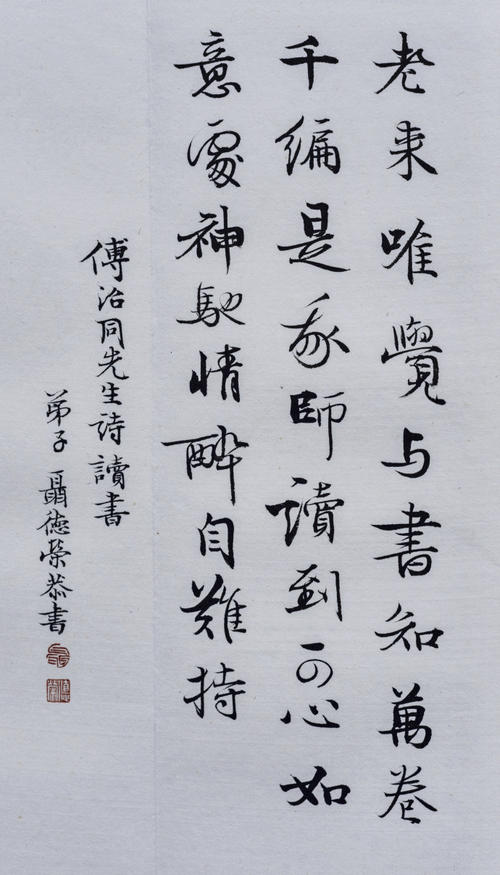 老来唯覺与書知萬卷
千編是我師讀到可心如
意處神馳情醉自難持
傅治同先生詩讀書
弟子聶德榮恭書